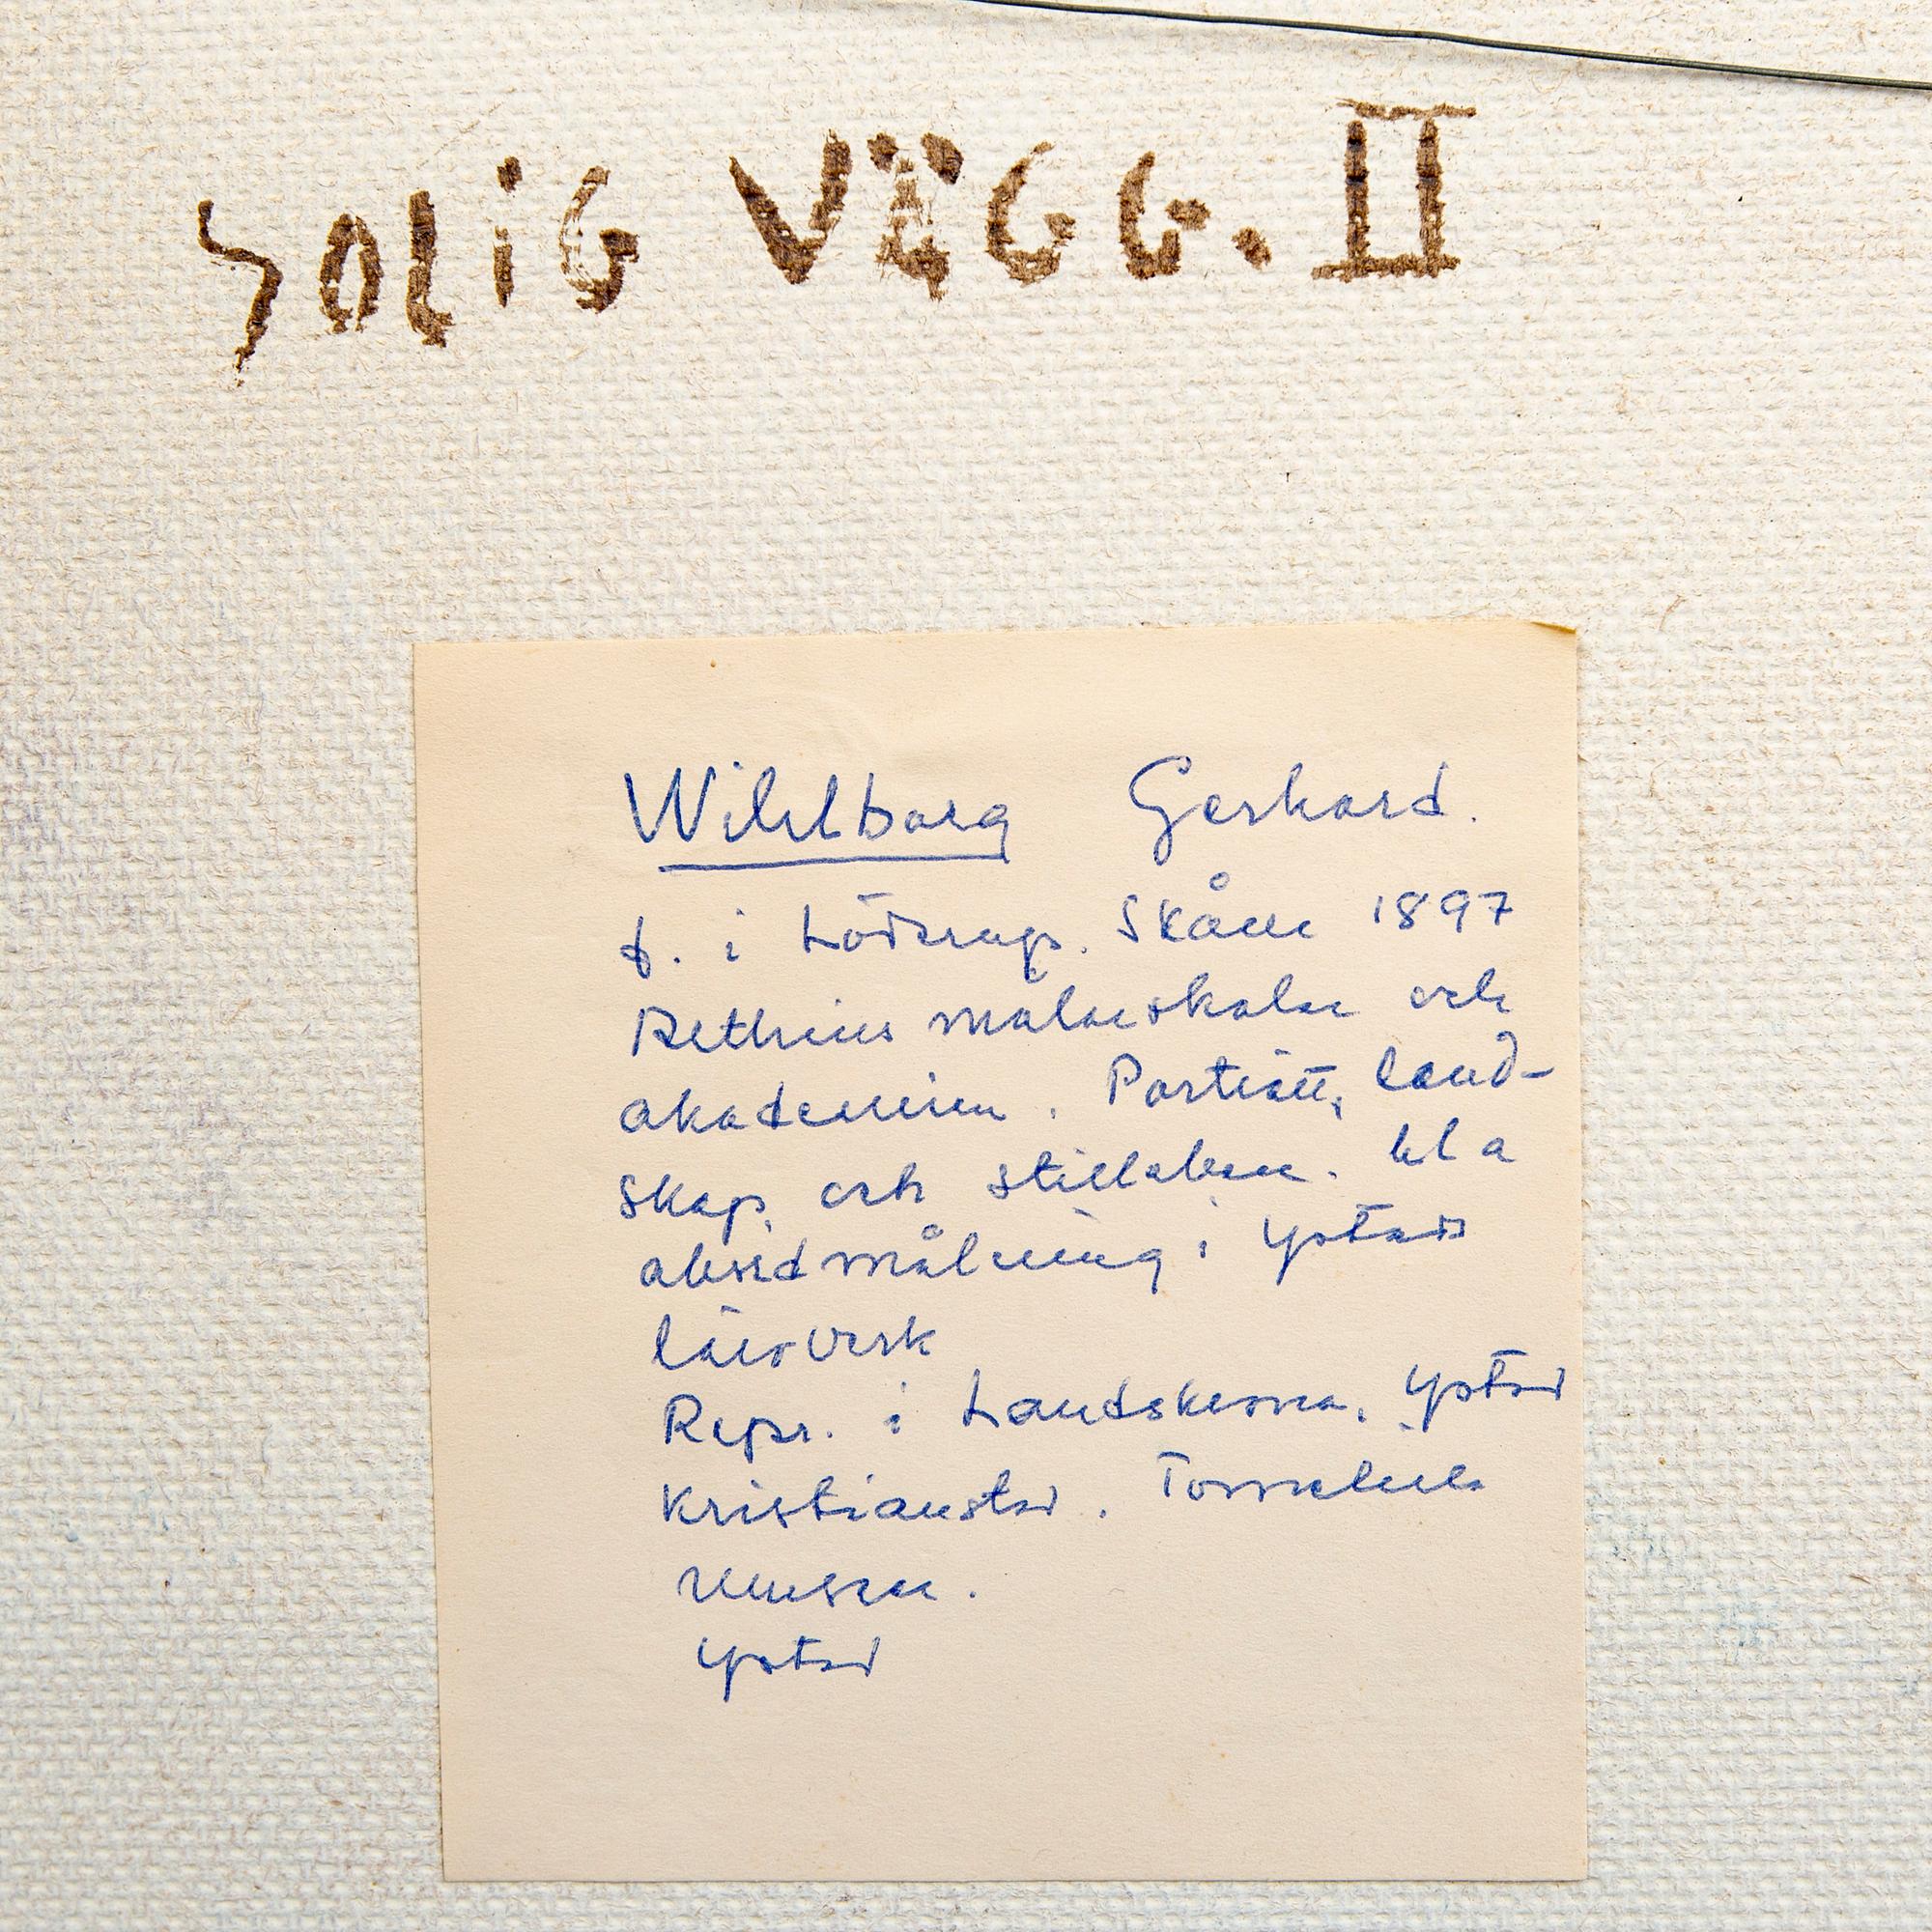 SOLiG VÄGG. II
Wihlborg Gerhard.
f. i Löderup. Skåne 1897
Rethius målarskola och
akademien. Porträtt, land-
skap, och stilleben. bl a
absidmålning i Ystads
läroverk
Repr. i Landskrona, Ystad
Kristianstad. Tomelilla
museum.
Ystad